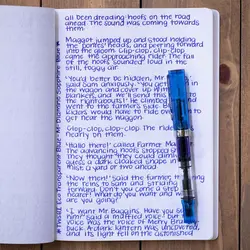 all been dreading: hoofs on the road
ahead. The sound was coming towards
them.
Maggot jumped up and stood holding
the ponies' heads, and peering forward
into the gloom. Clip-clop, clip-clop
came the approaching rider. The fall
of the hoofs sounded loud in the
still, foggy air.
"You'd better be hidden, Mr.
said Sam anxiously. "You get
in the wagon and cover up with
blankets, and we'll send this
to the rightabouts!" He climbed
and went to the farmer's side. Black
Riders would have to ride over him to
get near the waggon.
Clop-clop, clop-clop. The rider was
nearly on them.
"Hallo there!" called Farmer Maggot.
The advancing hoofs stopped short.
They thought they could dimly
guess a dark cloaked shape in
mist, a yard or two ahead.
"Now then!" said the farmer, throwing
the reins to Sam and striding
forward. "Don't you come a step
nearer! What do you want, and where
are you going?"
"I want Mr. Baggins. Have you
him?" said a muffled voice - but
voice was the voice of Merry Brandy-
buck. A dark lantern was uncovered,
and its light fell on the astonished